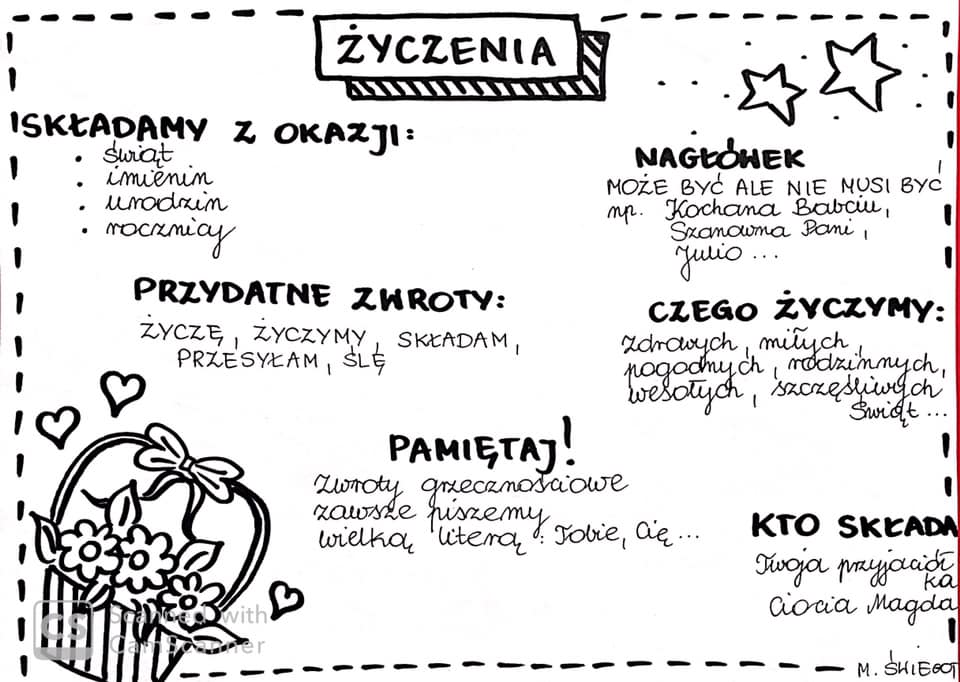 ŻYCZENIA
SKŁADAMY Z OKAZJI:
• świąt
• imienin
• urodzin
• rocznicy
NAGŁÓWEK
MOŻE BYĆ ALE NIE MUSI BYĆ
np. Kochana Babciu,
Szanowna Pani,
Julio ...
PRZYDATNE ZWROTY:
ŻYCZĘ, ŻYCZYMY, SKŁADAM,
PRZESYŁAM, ŚLĘ
CZEGO ŻYCZYMY:
zdrowych, miłych,
pogodnych, rodzinnych,
wesołych, szczęśliwych
Świąt ...
PAMIĘTAJ!
Zwroty grzecznościowe
zawsze piszemy
wielką literą: Tobie, Cię ...
KTO SKŁADA
Twoja przyjaciół
ka
Ciocia Magda
CS Scanned with
CamScanner
M. ŚWIEGOT